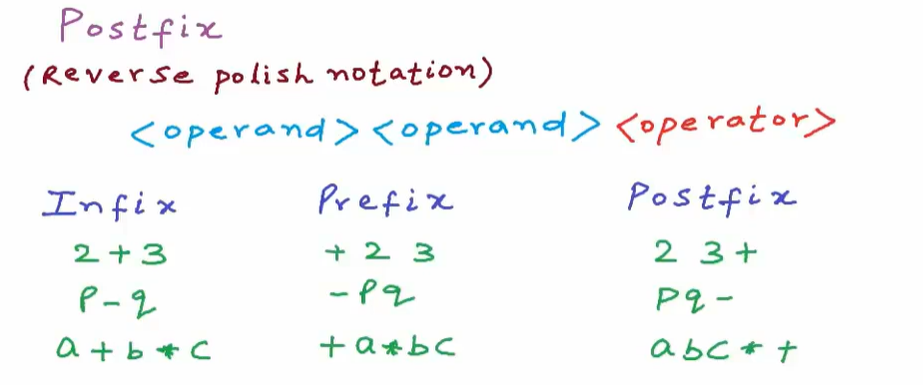 Postfix
(Reverse polish notation)
<operand> <operand> <operator>
Infix Prefix Postfix
2 + 3 + 2 3 2 3 +
p - q - p q p q -
a + b * c + a * b c a b c * +